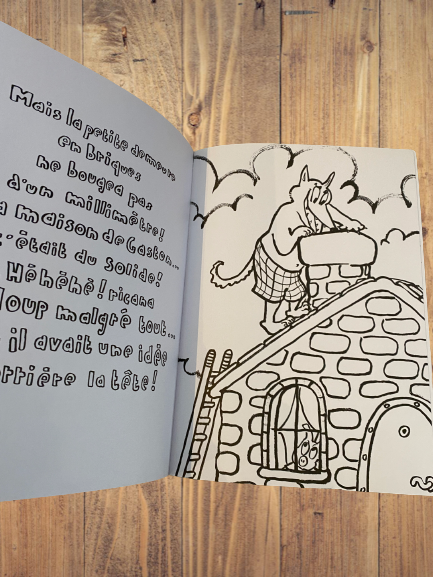 Mais la petite demeure
en briques
ne bougea pas
d'un millimètre!
a maison de Gaston...
c'était du solide!
Héhéhé! ricana
loup malgré tout...
il avait une idée
errière la tête!